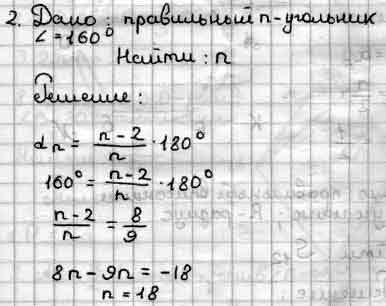 2. Дано: правильный n-угольник
∠ = 160°
Найти: n
Решение:
αn = (n-2)/n · 180°
160° = (n-2)/n · 180°
(n-2)/n = 8/9
8n - 9n = -18
n = 18